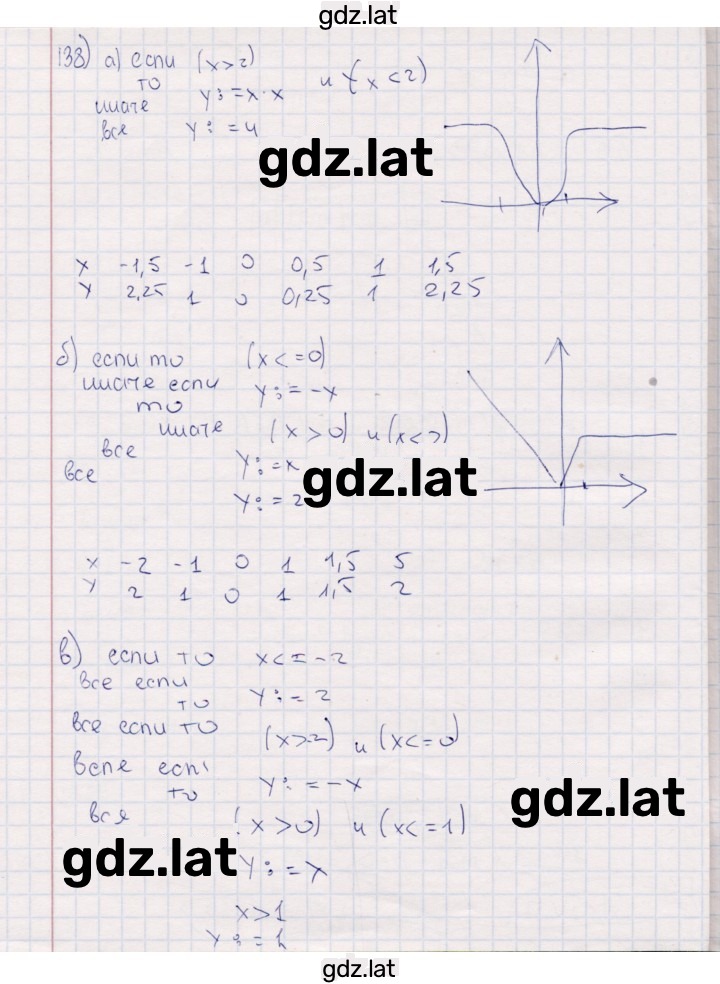 gdz.lat
138) а) если (x>2) и (x<2)
то
иначе y:=x·x
все y:=4
gdz.lat
x -1,5 -1 0 0,5 1 1,5
y 2,25 1 0 0,25 1 2,25
б) если то (x<=0)
иначе если y:=-x
то
иначе (x>0) и (x<2)
все
все y:=x
gdz.lat
y:=2
x -2 -1 0 1 1,5 5
y 2 1 0 1 1,5 2
в) если то x<=-2
все если
то y:=2
все если то (x>2) и (x<=0)
все если
то y:=-x
gdz.lat
все (x>0) и (x<=1)
gdz.lat
y:=x
x>1
y:=1
gdz.lat